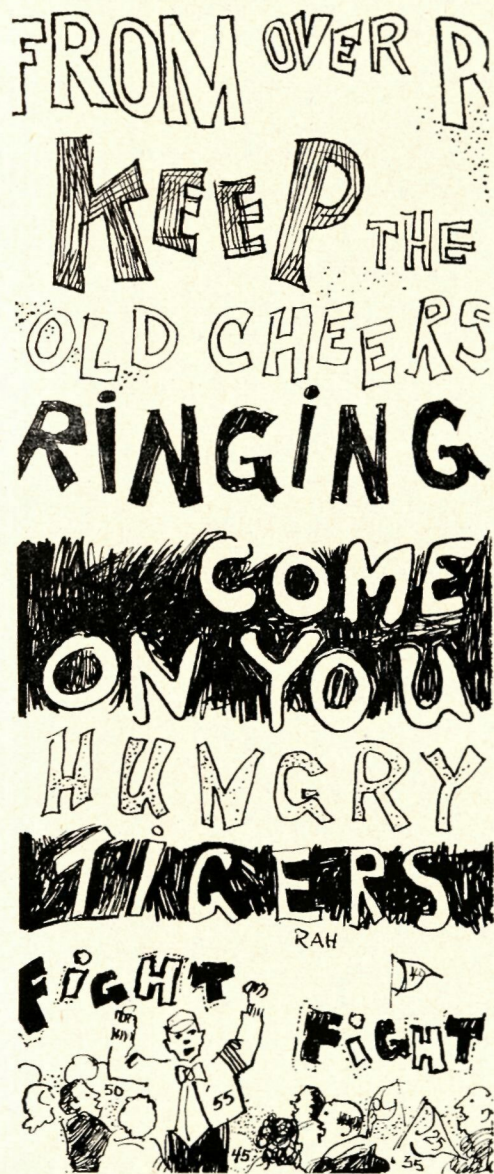 FROM OVER R
KEEP THE
OLD CHEERS
RiNGiNG
COME
ON YOU
HUNGRY
TiGERS
RAH
FiGHT
FiGHT
50
55
45
25
35